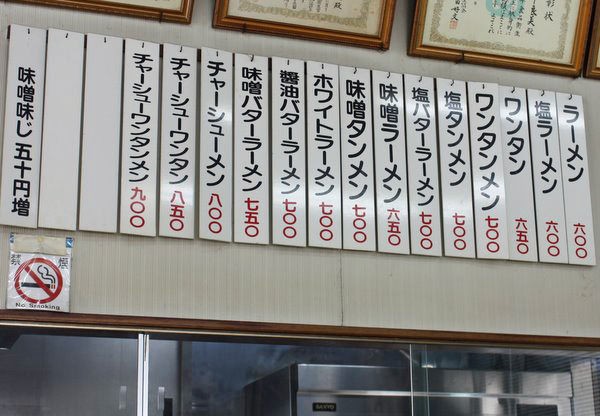 ラーメン 六〇〇
塩ラーメン 六〇〇
ワンタン 六五〇
ワンタンメン 七〇〇
塩タンメン 七〇〇
塩バターラーメン 七〇〇
味噌ラーメン 六五〇
味噌タンメン 七〇〇
ホワイトラーメン 七〇〇
醬油バターラーメン 七〇〇
味噌バターラーメン 七五〇
チャーシューメン 八〇〇
チャーシューワンタン 八五〇
チャーシューワンタンメン 九〇〇
味噌味じ五十円増
禁煙
No Smoking
SANYO